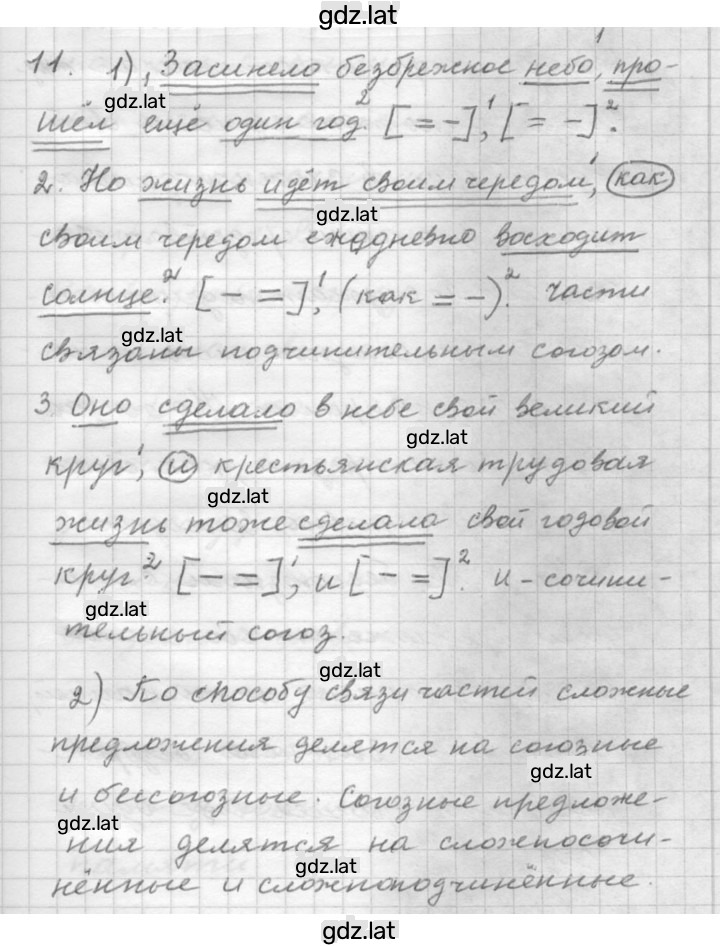 gdz.lat
11. 1), Засинело безбрежное небо,¹ про-
gdz.lat
шёл ещё один год.² [= –],¹ [= –]².
2. Но жизнь идёт своим чередом,¹ как
gdz.lat
своим чередом ежедневно восходит
солнце.² [– =],¹ (как = –).² части
gdz.lat
связаны подчинительным союзом.
3 Оно сделало в небе свой великий
gdz.lat
круг,¹ и крестьянская трудовая
gdz.lat
жизнь тоже сделала свой годовой
круг.² [– =],¹ и [– =].² и - сочини-
gdz.lat
тельный союз.
gdz.lat
2) По способу связи частей сложные
предложения делятся на союзные
gdz.lat
и бессоюзные. Союзные предложе-
gdz.lat
ния делятся на сложносочи-
gdz.lat
нённые и сложноподчинённые.
gdz.lat